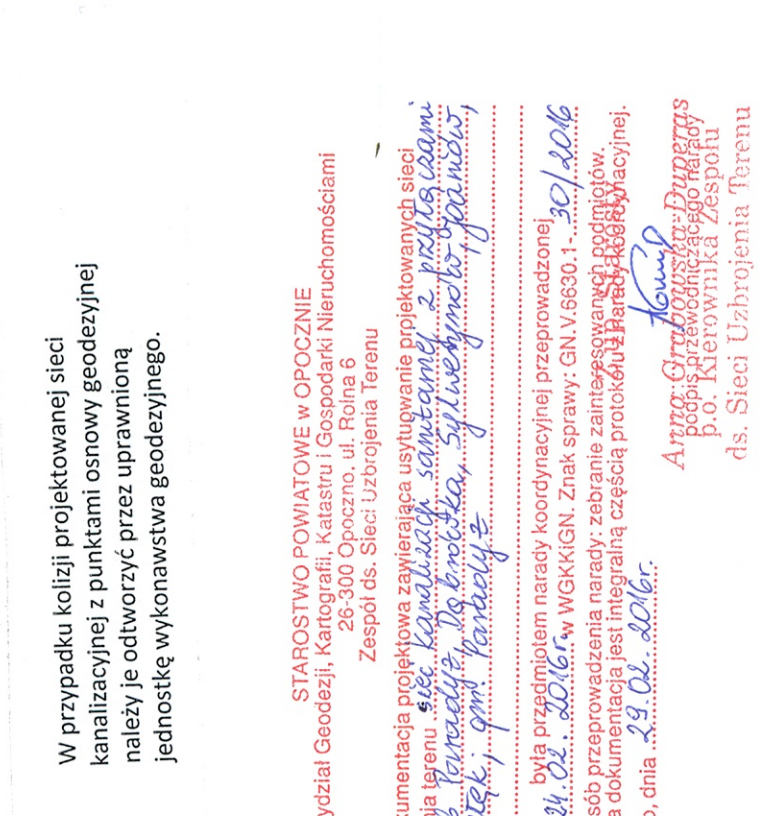 W przypadku kolizji projektowanej sieci
kanalizacyjnej z punktami osnowy geodezyjnej
należy je odtworzyć przez uprawnioną
jednostkę wykonawstwa geodezyjnego.
STAROSTWO POWIATOWE w OPOCZNIE
ydział Geodezji, Kartografii, Katastru i Gospodarki Nieruchomościami
26-300 Opoczno, ul. Rolna 6
Zespół ds. Sieci Uzbrojenia Terenu
umentacja projektowa zawierająca usytuowanie projektowanych sieci
nia terenu sieć kanalizacji sanitarnej z przyłączami
Paradyż, Dąbrówka, Sylwerynów, Joaniów,
tęk, gm. Paradyż
była przedmiotem narady koordynacyjnej przeprowadzonej
24.02.2016r. w WGKKiGN. Znak sprawy: GN.V.6630.1-30/2016
sób przeprowadzenia narady: zebranie zainteresowanych podmiotów.
a dokumentacja jest integralną częścią protokołu z narady koordynacyjnej.
o, dnia 29.02.2016r.
Z up. Starosty
Anna Grabowska-Duperas
podpis przewodniczącego narady
p.o. Kierownika Zespołu
ds. Sieci Uzbrojenia Terenu